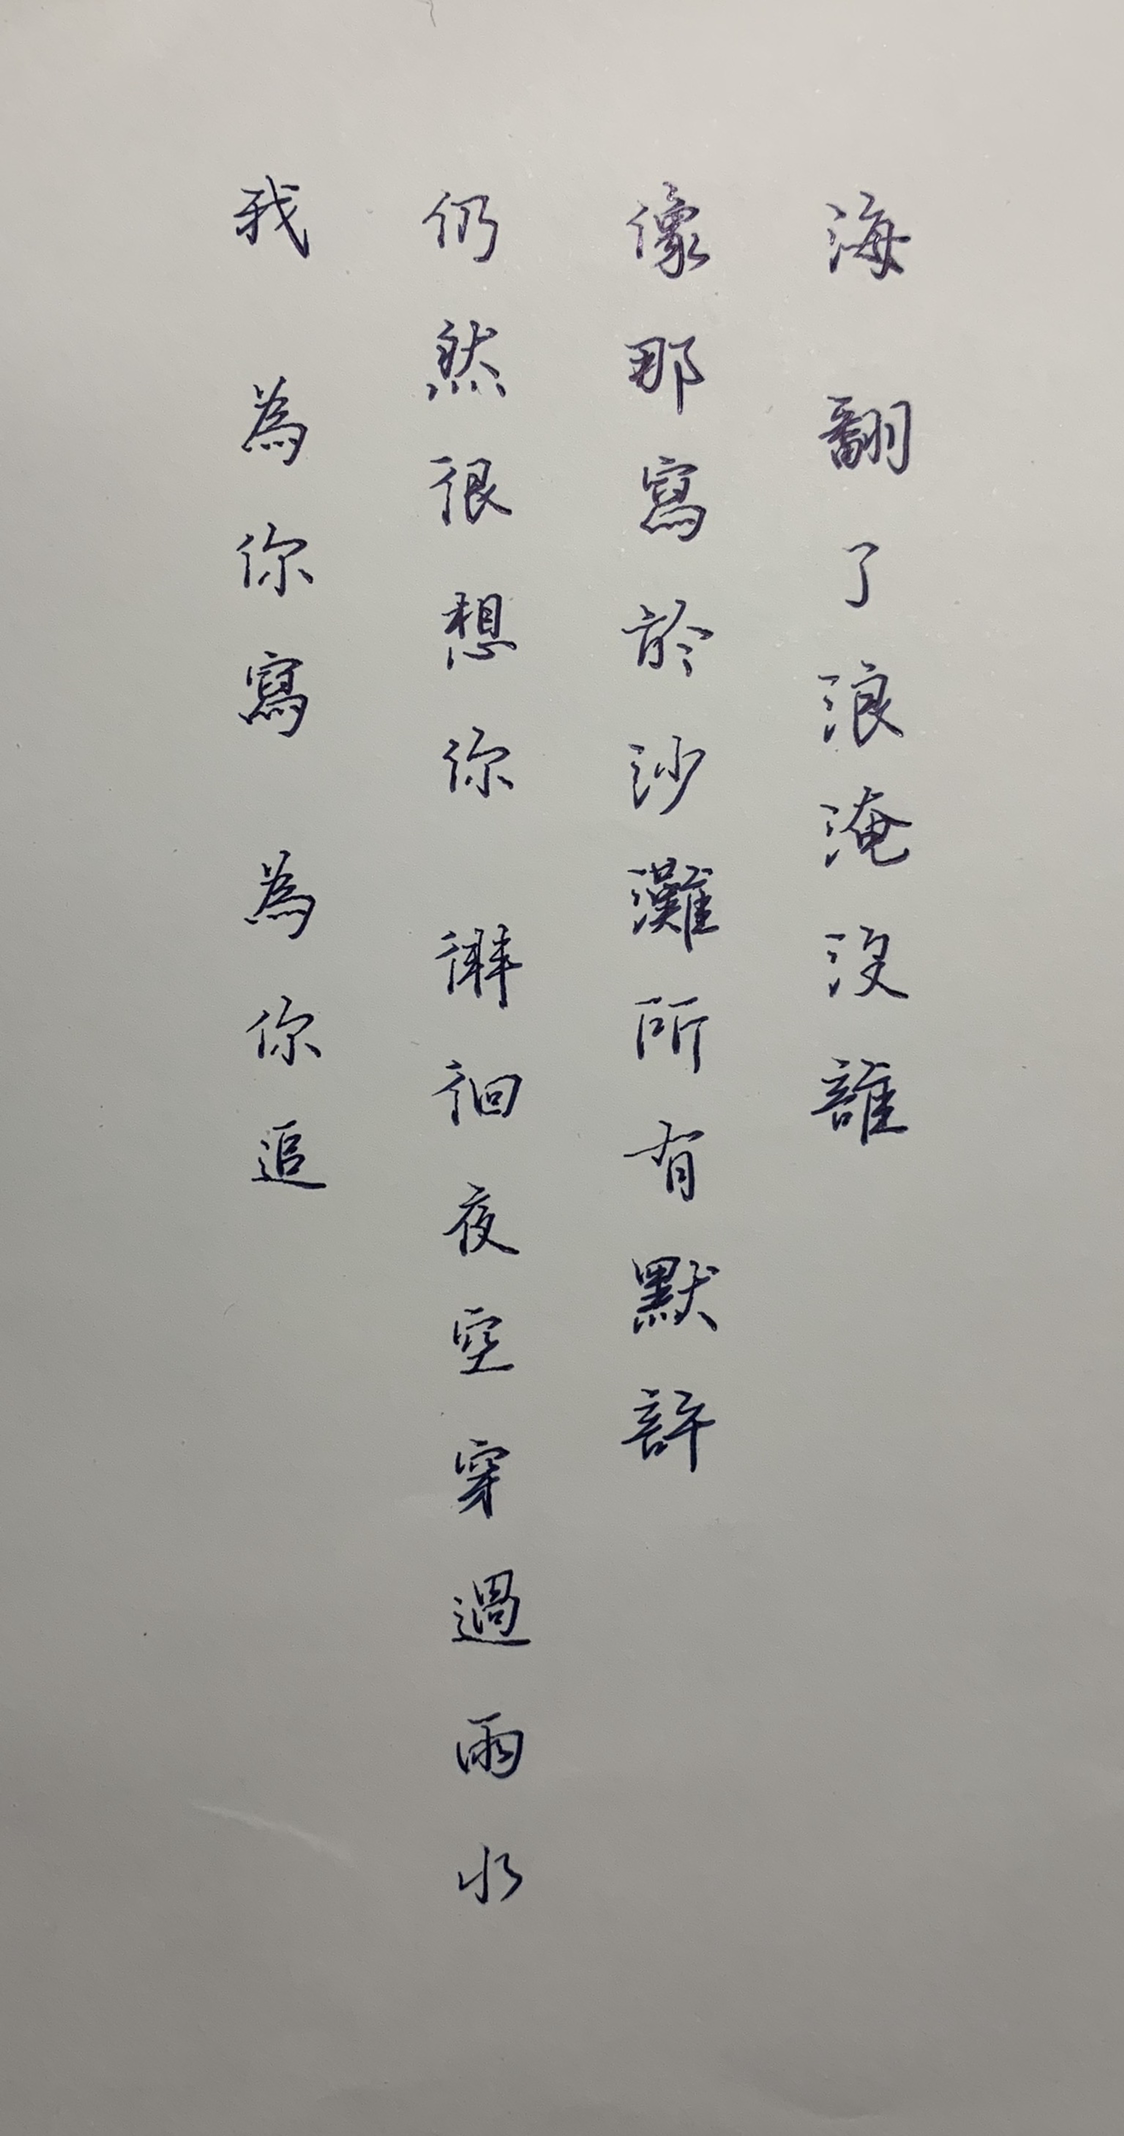 海 翻了浪淹沒誰
像那寫於沙灘所有默許
仍然很想你 徘徊夜空穿過雨水
我 為你寫 為你追